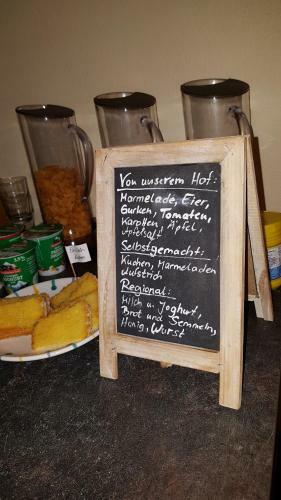 Von unserem Hof:
Marmelade, Eier,
Gurken, Tomaten,
Karpfen, Äpfel,
Apfelsaft
Selbstgemacht:
Kuchen, Marmeladen
Aufstrich
Regional:
Milch u. Joghurt,
Brot und Semmeln,
Honig, Wurst